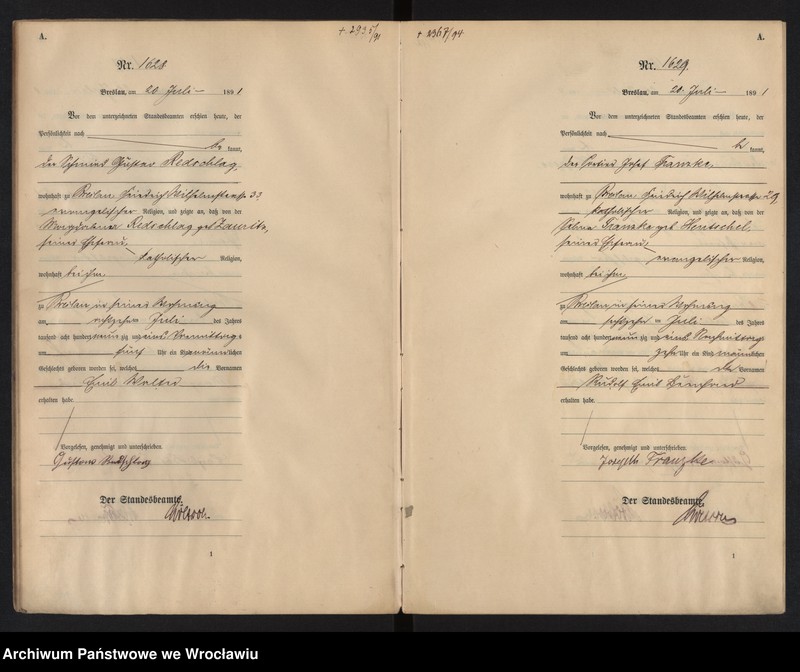 A.
+. 2935/91
Nr. 1628
Breslau, am 20 Juli 1891
Vor dem unterzeichneten Standesbeamten erschien heute, der
Persönlichkeit nach
be kannt,
der Schmied Gustav Redschlag,
wohnhaft zu Breslau Friedrich Wilhelmstraße
evangelischer Religion, und zeigte an, daß von der
Redschlag geb.
seiner Ehefrau,
katholischer Religion,
wohnhaft bei ihm,
zu Breslau in seiner Wohnung
am achtzehn Juli des Jahres
tausend acht hundert neunzig und eins Vormittags
um fünf Uhr ein Kind männlichen
Geschlechts geboren worden sei, welches die Vornamen
Emil Walter
erhalten habe.
Vorgelesen, genehmigt und unterschrieben.
Gustav Redschlag
Der Standesbeamte.
1
+ 2367/94
A.
Nr. 1629.
Breslau, am 20 Juli 1891
Vor dem unterzeichneten Standesbeamten erschien heute, der
Persönlichkeit nach
be kannt,
der Josef Franzke,
wohnhaft zu Breslau Friedrich Wilhelmstraße 29
katholischer Religion, und zeigte an, daß von der
Franzke geb. Hentschel,
seiner Ehefrau,
evangelischer Religion,
wohnhaft bei ihm,
zu Breslau in seiner Wohnung
am Juli des Jahres
tausend acht hundert neunzig und eins Nachmittags
um zehn Uhr ein Kind männlichen
Geschlechts geboren worden sei, welches die Vornamen
Rudolf Emil
erhalten habe.
Vorgelesen, genehmigt und unterschrieben.
Joseph Franzke
Der Standesbeamte.
1
Archiwum Państwowe we Wrocławiu